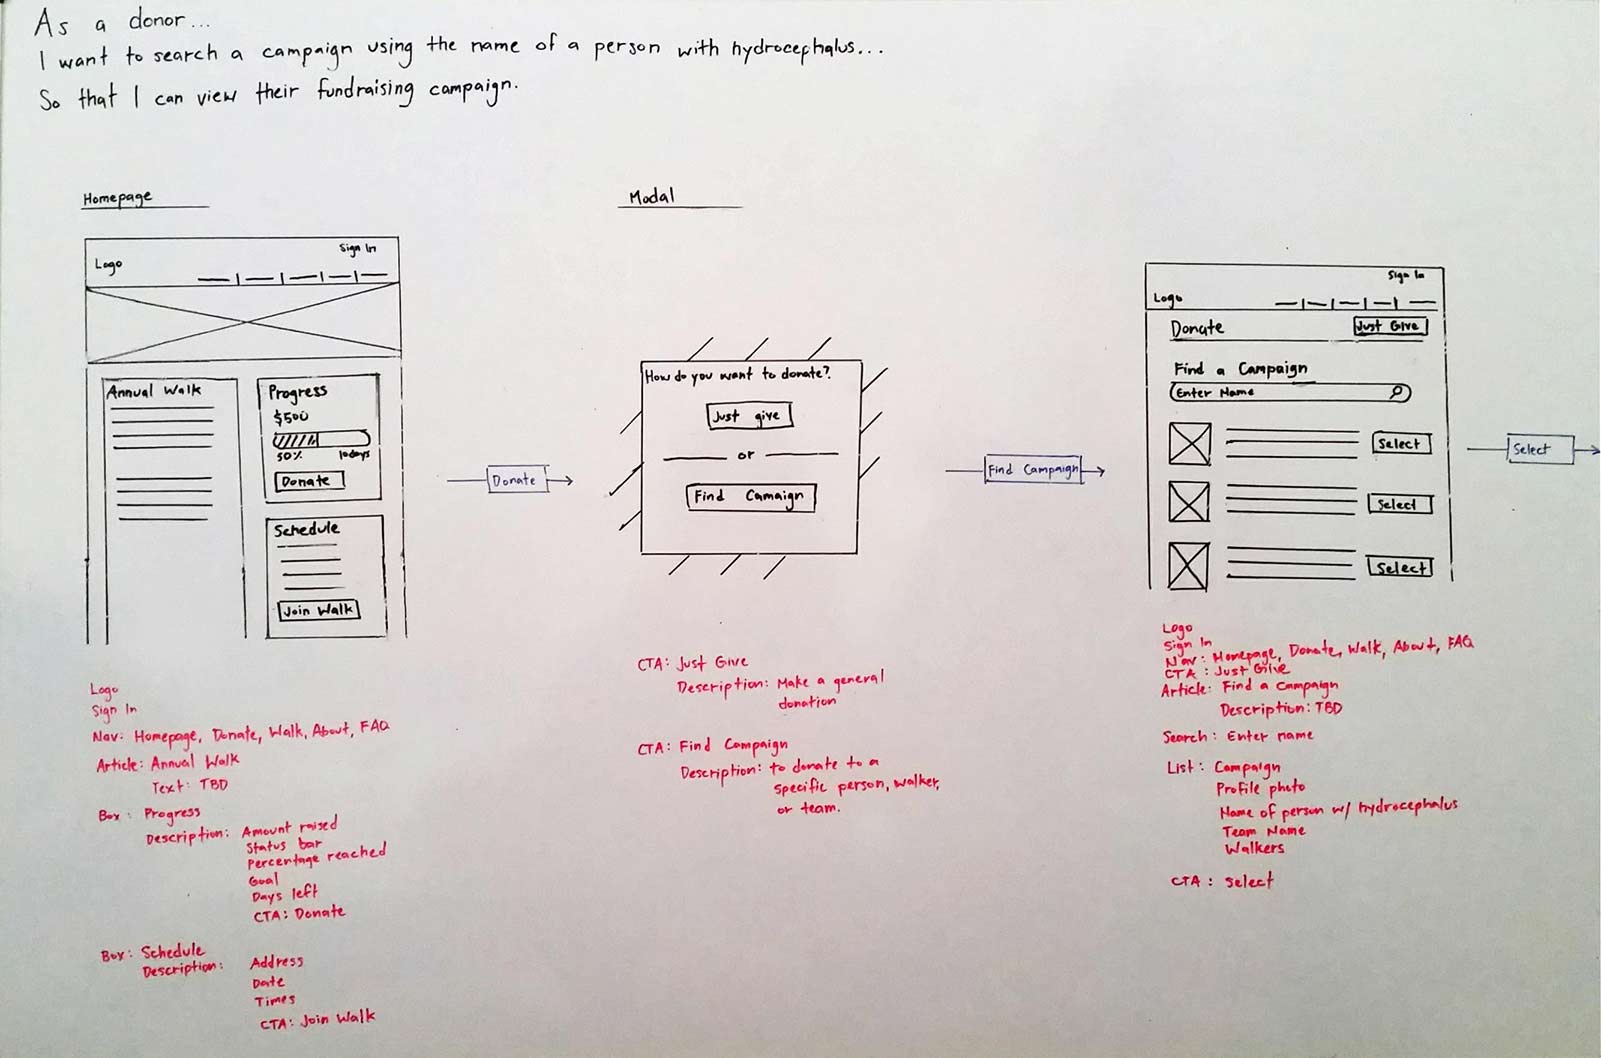 As a donor...
I want to search a campaign using the name of a person with hydrocephalus...
So that I can view their fundraising campaign.
Homepage
Sign In
Logo
Annual Walk
Progress
$500
50% 10days
Donate
Schedule
Join Walk
Donate
Modal
How do you want to donate?
Just give
or
Find Camaign
Find Campaign
Sign In
Logo
Donate
Just Give
Find a Campaign
Enter Name
Select
Select
Select
Select
Logo
Sign In
Nav: Homepage, Donate, Walk, About, FAQ
Article: Annual Walk
Text: TBD
Box: Progress
Description: Amount raised
Status bar
Percentage reached
Goal
Days left
CTA: Donate
Box: Schedule
Description: Address
Date
Times
CTA: Join Walk
CTA: Just Give
Description: Make a general
donation
CTA: Find Campaign
Description: to donate to a
specific person, walker,
or team.
Logo
Sign In
Nav: Homepage, Donate, Walk, About, FAQ
CTA: Just Give
Article: Find a Campaign
Description: TBD
Search: Enter name
List: Campaign
Profile photo
Name of person w/ hydrocephalus
Team Name
Walkers
CTA: Select